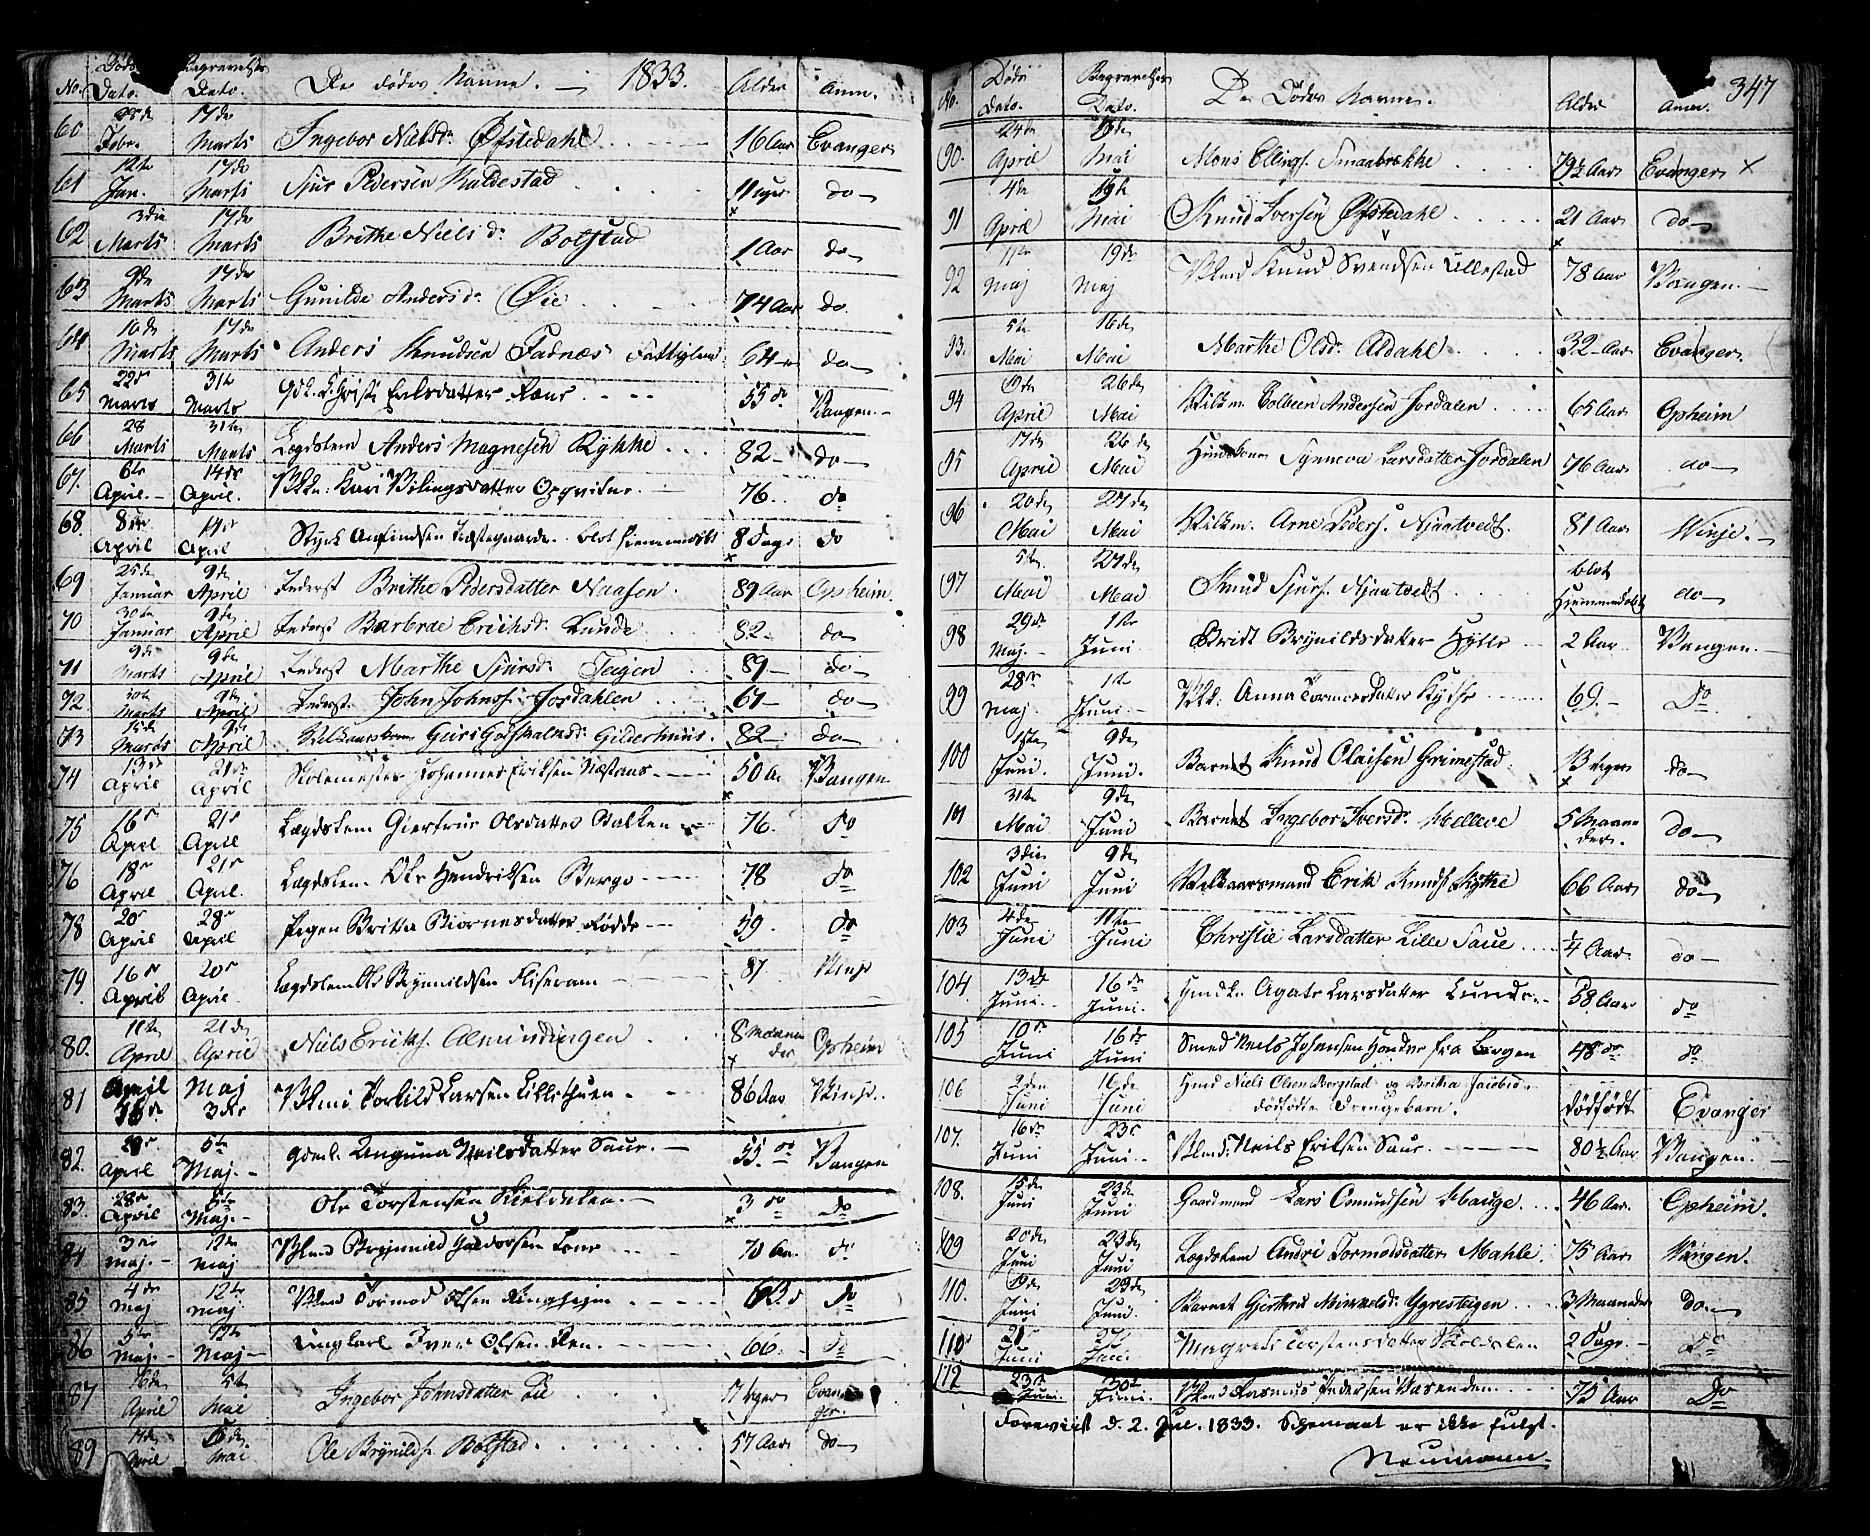 No. Døds Dato. Begravelses Dato. De dødes Navne. — 1833. Alder Anm.
60 Febr. 17de Marts Ingebor Nielsdr. Øfstedahl 16 Aar Evanger
61 12te Jan. 17de Marts Sjur Pedersen Kaldestad 11 uger do
62 3die Marts 17de Marts Brithe Nielsd. Bolstad 1 Aar do
63 9de Marts 17de Marts Gunilde Andersdr. Øie 74 Aar do.
64 10de Marts 17de Marts Anders Knudsen Fadnæs Fattiglem 64 do
65 22de Marts 31te Marts Erilsdatter 55 do Vangen.
66 28 Marts 31te Marts Lægdslem Anders Magnesen Rykke 82 do
67. 6te April. 14de April. Kari 76. do
68. 8de April 14de April Styck blot hiemmedøbt 8 Dage do
69 25de Januar 9de April Inderst Brithe Pedersdatter Naasen. 89 Aar Opheim.
70 30te Januar 9de April Inderst Barbrae Erichsdr. Lunde 82 do
71 9de Marts 9de April Inderst Marthe Sjursdr. Tagen 89 do
72. 30te Marts 9de April Inderst. John Johnss. Jordahlen 67 do
73 15de Marts 9de April Gilderhuus. 82 do
74 13de April 21de April Skolemester Johannes Eriksen Næstaas 50 A. Vangen
75 16de April 21de April Lægdslem Giertrue Olsdatter Balken 76. do
76 18de April 21de April. Lægdslem. Ole Hendriksen Berge 78 do
78 20de April 28de April Pigen Britta Biørnesdatter Rødde 59. do
79. 16de April 20de April. Lægdslem Ole Brynnildsen 87. Vinje
80. 11te April 21de April Niels Eriks. Almindingen 8 Maaneder Opheim
81 April 15de Maj 3die Torkild Larsen 86 Aar Vinje.
82. 29de April 5te Maj. Nielsdatter Saue. 55 do Vangen
83. 28de April 5te Maj. Ole Torstensen Skieldalen. 3 do do
84 3die Maj. 12te Maj Brynnild Haldorsen Lone 70 Aar. do
85 4de Maj 12te Maj. Tormod Olsen Ringheim 63. do
86 5te Maj. 12te Maj Ungkarl Iver Olsen Ren. 66. do
87 16de April 5te Mai Ingebor Johnsdatter Lie 17 uger Evanger.
89 April Mai Ole Brynilds. Bolstad. 57 Aar do
No. Døds Dato. Begravelses Dato. De Dødes Navne. Alder Anm. 347
90. 24de April 19de Mai Mons Ellings. Smaabrække 79½ Aar Evanger ×
91 4de April 19de Mai Knud Iversen Øfstedahl 21 Aar do
92 11te Maj 19de Maj Knud Svendsen Ullestad 78 Aar Vangen.
93. 5te Mai 16de Mai Marthe Olsdr. Aldahl 32 Aar Evanger.
94 19de April 26de Mai Vilkm. Colbeen Andersen Jordalen 65 Aar Opheim
95 17de April 26de Mai Synneva Larsdatter Jordalen 76 Aar do
96 20de Mai 27de Mai Vilkm. Arne Peders. Njaatvedt. 81 Aar Winje.
97 5te Mai 27de Mai Knud Sjurs. Njaatvedt blot Hjemmedøbt do
98 29de Maj. 1te Juni Bridt Brynildsdatter 2 Aar Vangen.
99 28de Maj. 1te Juni. Anna Tormodsdatter Kythe 69. do
100 1ste Juni. 9de Juni. Barnet Knud Olaisen Grimestad 3 uger do
101 31te Mai 9de Juni Barnet Ingebor Iversdr. Melleve 5 Maaneder. do
102 3die Juni 9de Juni Vilkaarsmand Erik Knuds. Kythe 66 Aar do
103 4de Juni 11te Juni Christie Larsdatter Lille Saue ¼ Aar do
104. 13de Juni. 16de Juni. Agate Larsdatter Lunde. 58. Aar do
105 10de Juni 16de Juni Smed Neils Johansen fra Bergen 48 do do
106 2den Juni 16de Juni Hmd Niels Olsen Bergstad og Britha Jacobsd. dødfødte Drengebarn. dødfødt Evanger
107. 16de Juni 23de Juni. Neils Eriksen Saue. 80½ Aar Vangen.
108. 15de Juni 23de Juni Gaardmand Lars Omundsen Hauge. 46 Aar. Opheim.
109 20de Juni 23de Juni Lægdslem Andri Tormodsdatter Mahle 75 Aar Vangen.
110. 19de Juni 23de Juni. Barnet Gjertrud Mikkelsdr. Ygresteigen 3 Maaneder do
110 21de Juni Magrete Torstensdatter Skieldalen 2 Dage. do
112 23de Juni. 30te Juni. Rasmus Pedersen 75 Aar Do
Foreviist d. 2. Jul. 1833. Schemaet er ikke fulgt.
Neumann.